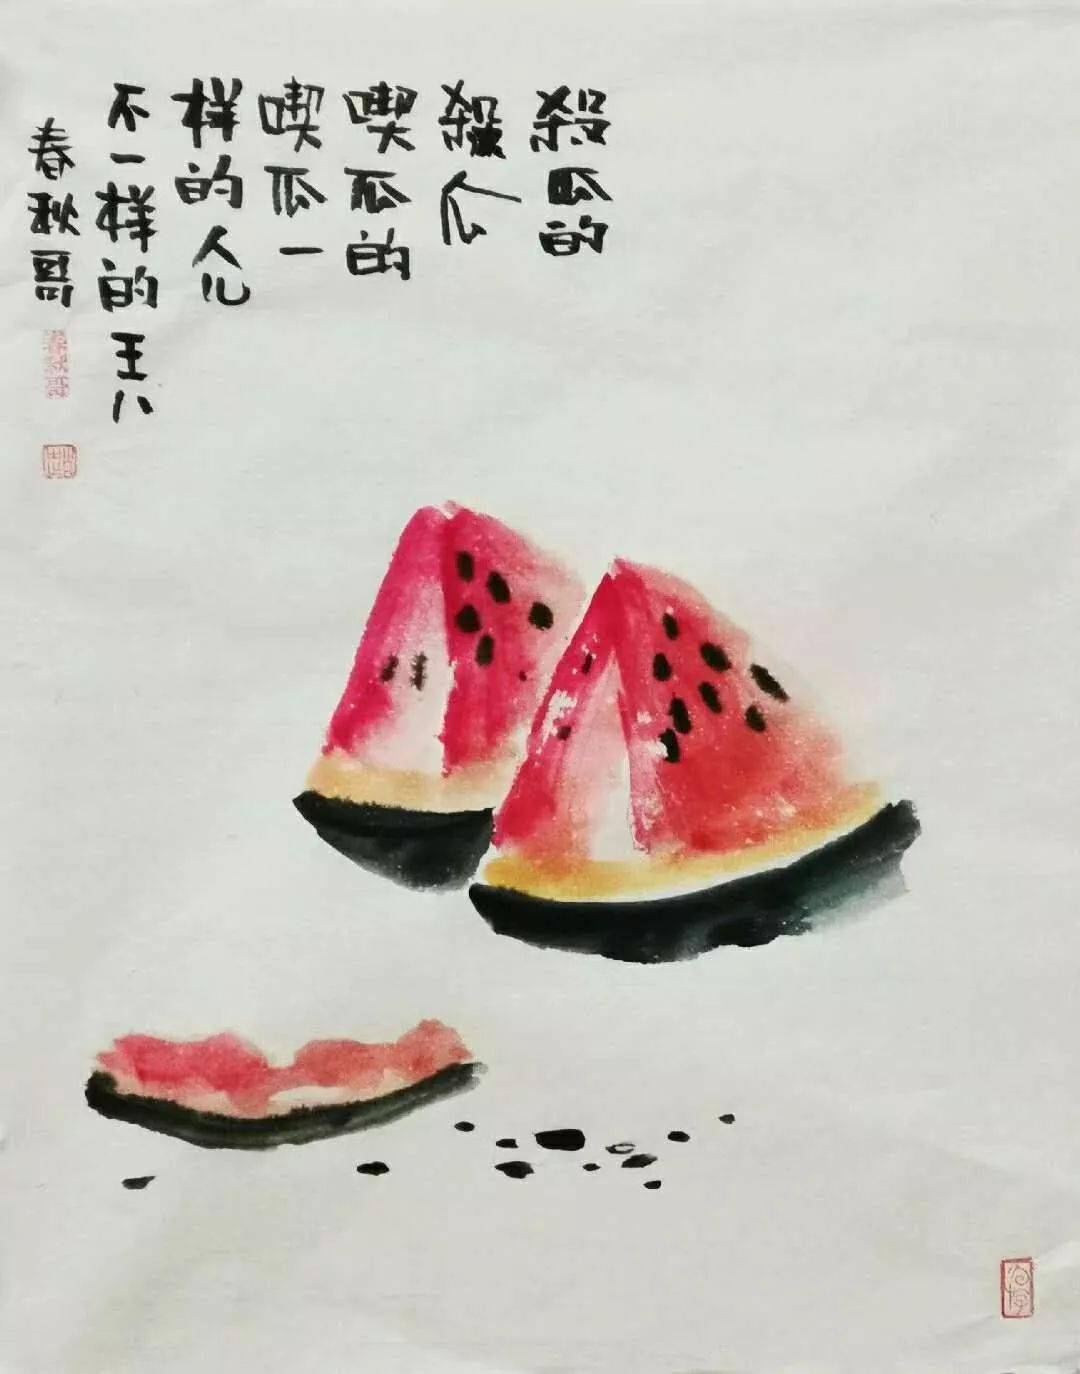 殺瓜的
殺瓜
喫瓜的
喫瓜一
样的人儿
不一样的王八
春秋哥
春秋哥